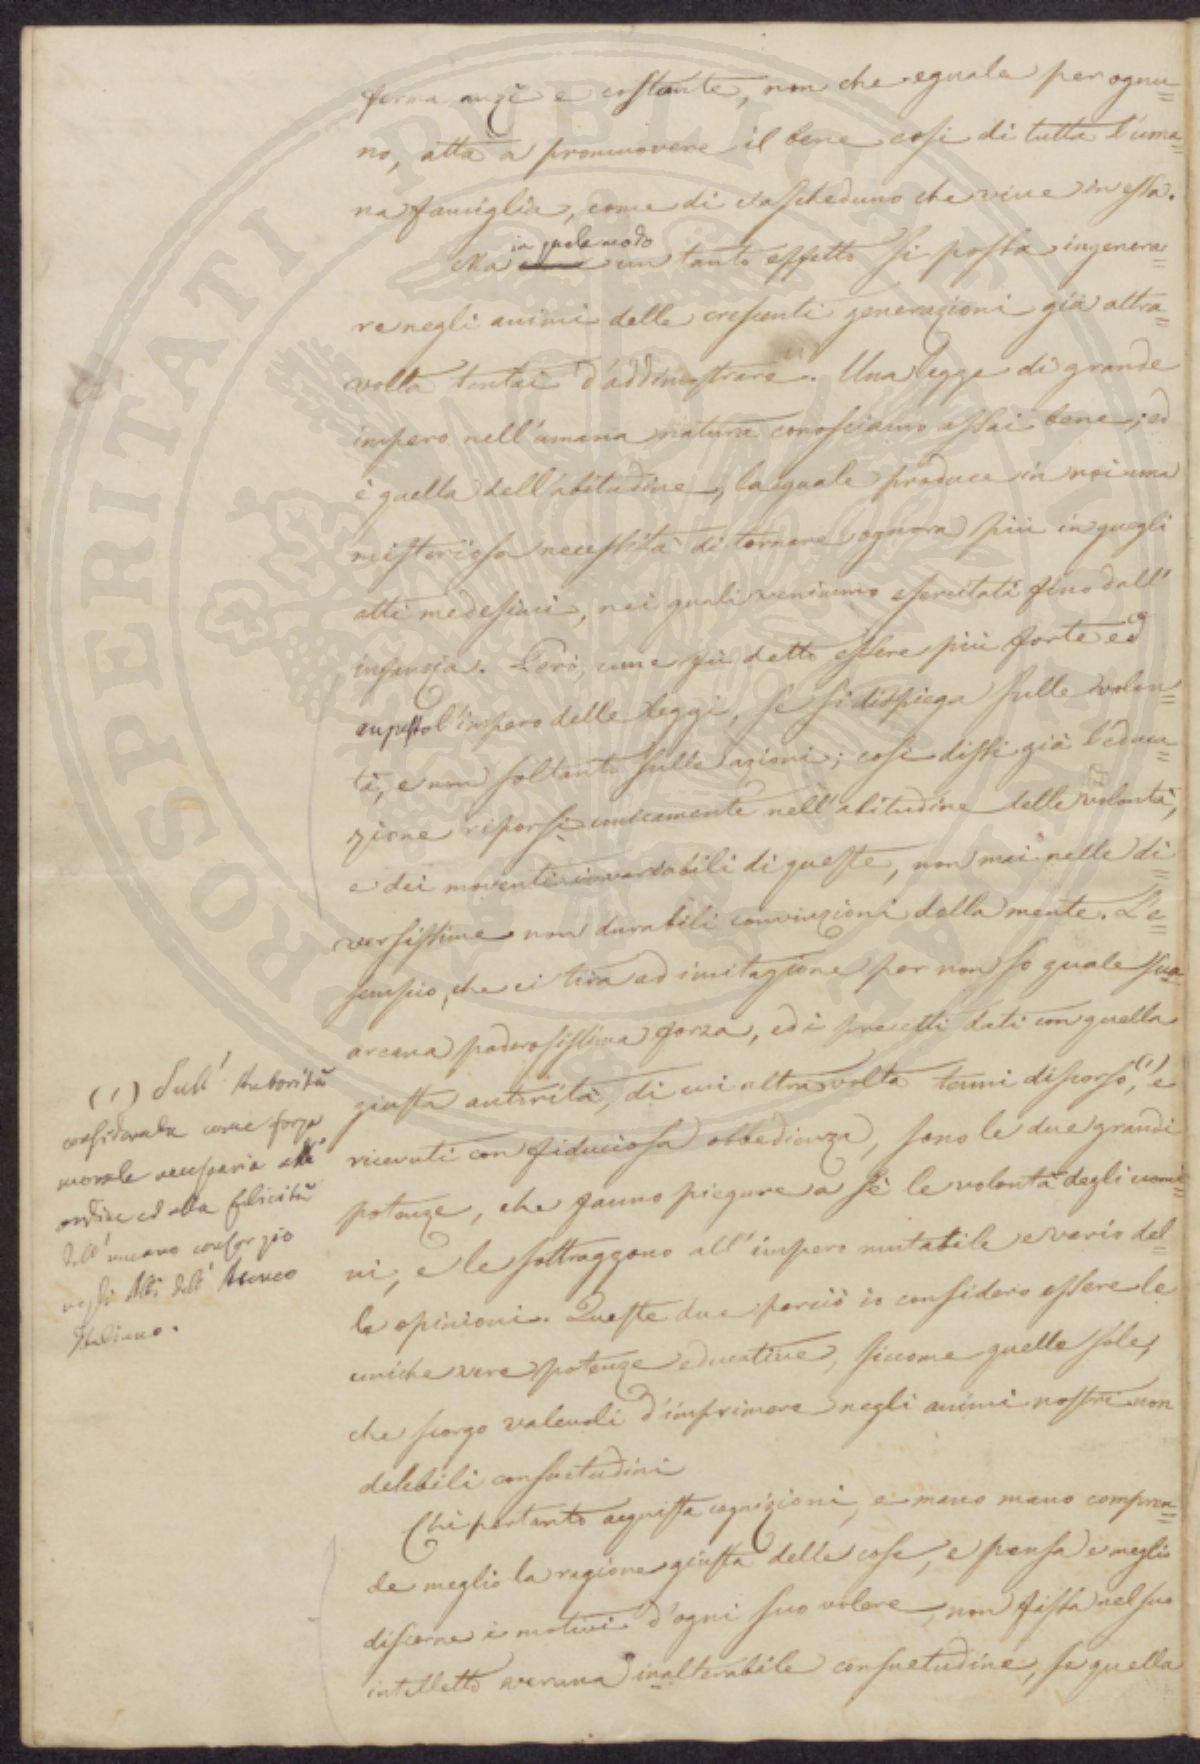 ferma anzi e costante, non che eguale per ognu=
no, atta a promuovere il bene così di tutta l'uma=
na famiglia, come di ciascheduno che vive in essa.
in quale modo
Ma un tanto effetto si possa ingenera=
re negli animi delle crescenti generazioni già altra=
volta tentai d'addimostrare. Una legge di grande
impero nell'umana natura conosciamo assai bene; ed
è quella dell'abitudine, la quale produce in noi una
misteriosa necessità di tornare ognora più in quegli
atti medesimi, nei quali venimmo esercitati fino dall'
infanzia. Però, come fù detto essere più forte ed
l'impero delle leggi, se si dispiega sulle volon=
tà, e non soltanto sulle azioni; così dissi già l'educa=
zione riporsi unicamente nell'abitudine delle volontà,
e dei moventi invariabili di queste, non mai nelle di=
versissime non durabili convinzioni della mente. L'e=
sempio, che ci tira ad imitazione per non so quale sua
arcana poderosissima forza, ed i precetti dati con quella
giusta autorità, di cui altra volta tenni discorso,(1) e
ricevuti con fiduciosa obbedienza, sono le due grandi
potenze, che fanno piegare a sè le volontà degli uomi=
ni, e le sottraggono all'impero mutabile e vario del=
le opinioni. Queste due perciò io considero essere le
uniche vere potenze educative, siccome quelle sole,
che scorgo valevoli d'imprimere negli animi nostri non
delebili consuetudini
Chi pertanto acquista cognizioni, e mano mano compren=
de meglio la ragione giusta delle cose, e pensa e meglio
discerne i motivi d'ogni suo volere, non fissa nel suo
intelletto veruna inalterabile consuetudine, se quella
(1) Sull' Autorità
considerata come forza
morale necessaria all'
ordine ed alla felicità
dell' umano consorzio
negli Atti dell' Ateneo
Italiano.
PROSPERITATI PUBLICAE